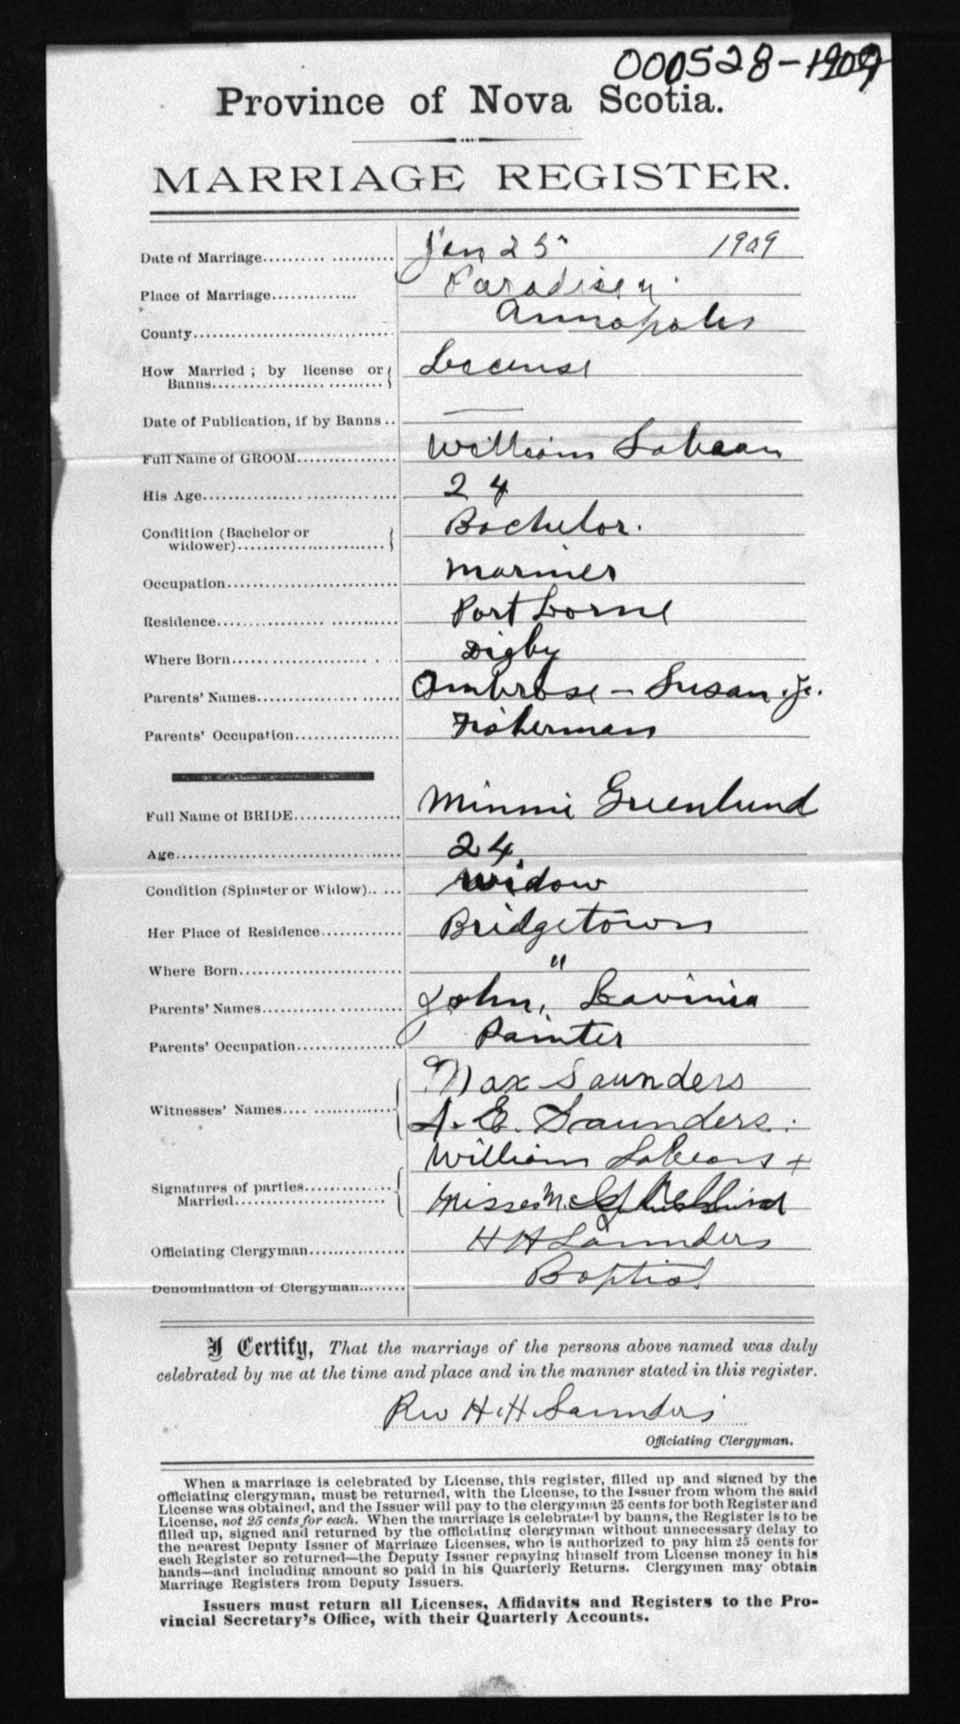 000528-1909
Province of Nova Scotia.
MARRIAGE REGISTER.
Date of Marriage Jan 25 1909
Place of Marriage Paradise
County Annapolis
How Married; by license or License
Banns
Date of Publication, if by Banns —
Full Name of GROOM William
His Age 24
Condition (Bachelor or Bachelor.
widower)
Occupation Mariner
Residence Port Lorne
Where Born Digby
Parents' Names Ambrose – Susan J.
Parents' Occupation Fisherman
Full Name of BRIDE Minnie Greenlund
Age 24.
Condition (Spinster or Widow) Widow
Her Place of Residence Bridgetown
Where Born "
Parents' Names John, Lavinia
Parents' Occupation Painter
Max Saunders
Witnesses' Names
E. Saunders.
William +
Signatures of parties
Married
Officiating Clergyman H H Saunders
Denomination of Clergyman Baptist
I Certify, That the marriage of the persons above named was duly
celebrated by me at the time and place and in the manner stated in this register.
Rev H. H. Saunders
Officiating Clergyman.
When a marriage is celebrated by License, this register, filled up and signed by the
officiating clergyman, must be returned, with the License, to the Issuer from whom the said
License was obtained, and the Issuer will pay to the clergyman 25 cents for both Register and
License, not 25 cents for each. When the marriage is celebrated by banns, the Register is to be
filled up, signed and returned by the officiating clergyman without unnecessary delay to
the nearest Deputy Issuer of Marriage Licenses, who is authorized to pay him 25 cents for
each Register so returned—the Deputy Issuer repaying himself from License money in his
hands—and including amount so paid in his Quarterly Returns. Clergymen may obtain
Marriage Registers from Deputy Issuers.
Issuers must return all Licenses, Affidavits and Registers to the Pro-
vincial Secretary's Office, with their Quarterly Accounts.